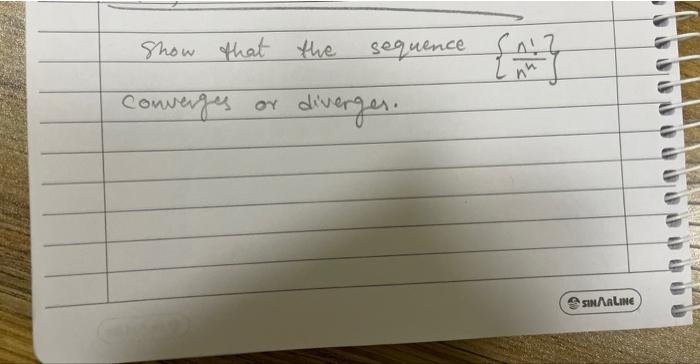 Show that the sequence {n!/nⁿ}
converges or diverges.
SINARLINE